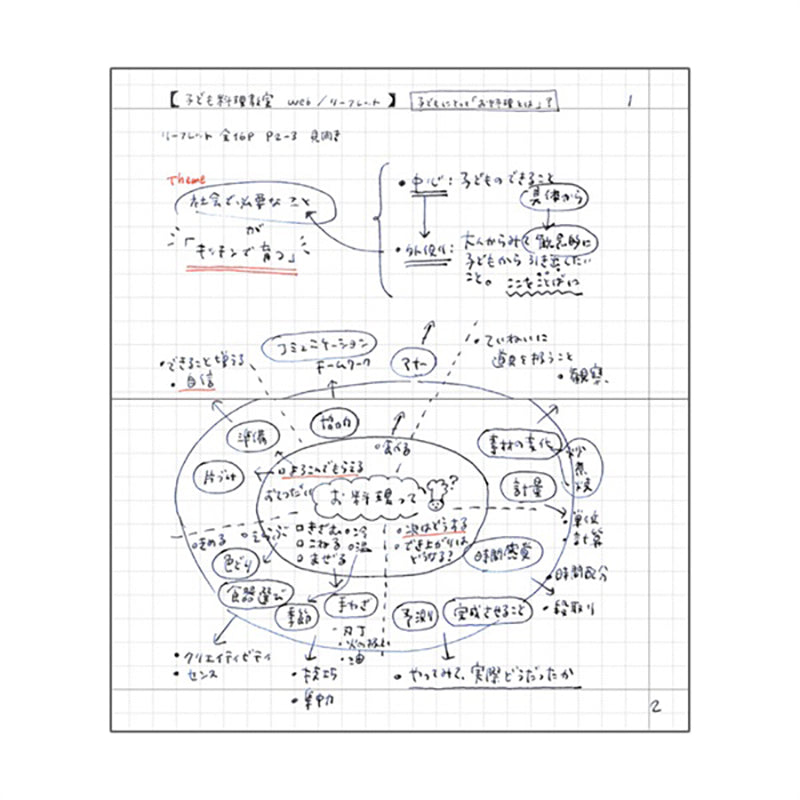 【子ども料理教室 web/リーフレット】 子どもにとって「お料理とは」?
1
リーフレット 全16P P2-3 見開き
Theme
社会で必要なこと
が
「キッチンで育つ」
・中心:子どものできること
具体から
・外側:大人からみて観念的に
子どもから引き出したい
こと。 ここをことばに
コミュニケーション
チームワーク
マナー
・ていねいに
道具を扱うこと
・観察
・できること増える
・自信
準備
協力
片づけ
よろこんでもらえる
おてつだい
食べる
お料理って
?
素材の変化
炒
煮
焼
計量
・単位
計算
きめる
えらぶ
きざむ
こねる
まぜる
冷
温
・次はどうする
・でき上がりは
どうなる?
色どり
食器選び
季節
手わざ
・刃丁
・火の扱い
・油
時間感覚
・時間配分
・段取り
予測
完成させること
・クリエイティビティ
・センス
・技巧
・集中力
・やってみて、実際どうだったか
2